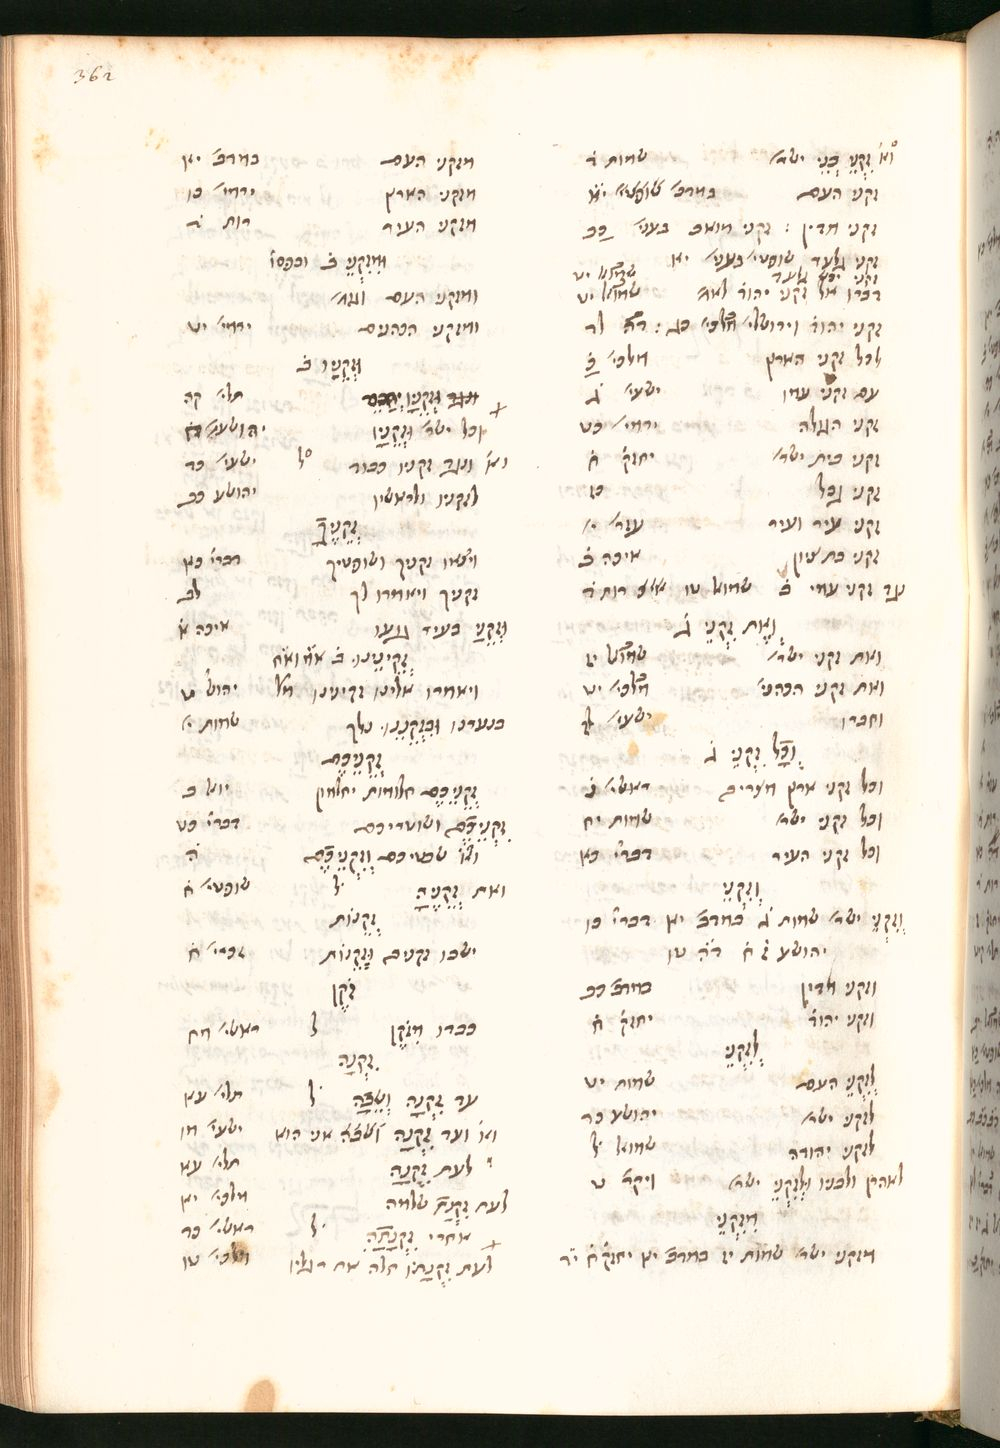 362
וא׳ זִקְנֵי בְנֵי ישר׳ שמות ד
זקני העם במדב׳ יא
זקני מדין : זקני מואב במד׳ כב
זקני גלעד שופטי׳ יא
זקני יבש גלעד שמוא׳ יא
דברו אל זקני יהוד׳ לאמ׳ שמוא׳ יט
זקני יהוד׳ וירושל׳ מלכי׳ כג : דה לד
לכל זקני הארץ מלכי׳ כ
עם זקני עמו ישעי׳ ג
זקני הגולה ירמי׳ כט
זקני בית ישר׳ יחזק׳ ח
זקני גבל כז
זקני עיר ועיר עזר׳ י
זקני בת ציון איכה ב
נגד זקני עמי ב שמוא׳ טו רות ד
וְאֶת זִקְנֵי ג
ואת זקני ישר׳ שמוא׳ יז
ואת זקני הכהני׳ מלכי׳ יט
וחברו ישעי׳ לז
וְכָל זִקְנֵי ג
וכל זקני ארץ מצרים ראשי׳ נ
וכל זקני ישר׳ שמות יח
וכל זקני העיר דברי׳ כא
וְזִקְנֵי
וְזִקְנֵי ישר׳ שמות ג במדב׳ יא דברי׳ כז
יהושע ז ח דה טו
וזקני מדין במדב׳ כב
וזקני יהוד׳ יחזק׳ ח
לְזִקְנֵי
לְזִקְנֵי העם שמות יט
לזקני ישר׳ יהושע כד
לזקני יהודה שמוא׳ ל
לאהרן ולבניו וּלְזִקְנֵי ישר׳ ויקר׳ ט
מִזִקְנֵי
מזקני ישר׳ שמות יז במדב׳ יא יחזק׳ ח יד
מזקני העם במדב׳ יא
מזקני הארץ ירמי׳ כו
מזקני העיר רות ד
וּמִזִקְנֵי ב ובפסו׳
ומזקני העם
ומזקני הכהנים ירמי׳ יט
וּזְקֵנָיו ב
תלי׳ קה
וכל ישר׳ וּזְקֵנָיו יהושע ח
וא׳ ונגד זקניו כבוד ל ישעי׳ כד
לזקניו ולראשיו יהושע כב
זְקֵנֶיךָ
ויצאו זקניך ושופטיך דברי׳ כא
זקניך ויאמרו לך לב
וּזְקֵנַי בעיר גועו איכה א
זְקֵינֵינוּ ב
ויאמרו אלינו זקינינו יהוש׳ ט
בנערנו וּבִזְקֵנֵנוּ נלך שמות י
זִקְנֵיכֶם
זִקְנֵיכֶם חלומות יחלמון יואל ב
זִקְנֵיכֶם ושוטריכם דברי׳ כט
שבטיכם וְזִקְנֵיכֶם ה
ואת זְקֵנֶיהָ ל שופטי׳ ח
זְקֵנוֹת
ישבו זקנים וּזְקֵנוֹת זכרי׳ ח
זֹקֶן
כבדו מִזֹקֶן ל ראשי׳ מח
זִקְנָה
עד זִקְנָה וְשֵׂיבָה ל תלי׳ עא
וא׳ ועד זִקְנָה אני הוא ישעי׳ מו
לעת זִקְנָה תלי׳ עא
לעת זִקְנַת שלמה מלכי׳ יא
אחרי זִקְנָתָהּ ל ראשי׳ כד
לעת זִקְנָתוֹ חלה את רגליו מלכי׳ טו